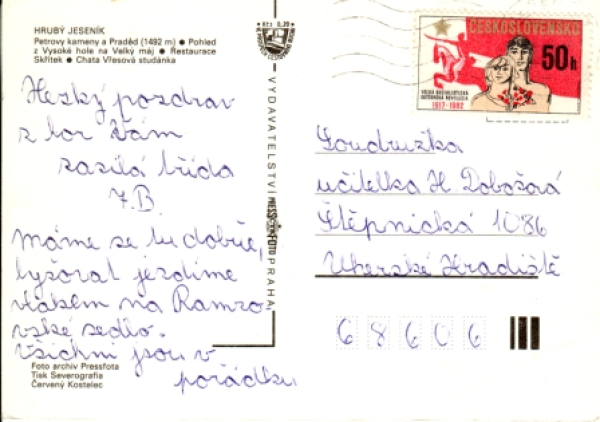 HRUBÝ JESENÍK
Petrovy kameny a Praděd (1492 m) ● Pohled
z Vysoké hole na Velký máj ● Restaurace
Skřítek ● Chata Vřesová studánka
Hezký pozdrav
z hor Vám
zasílá třída
7.B.
Máme se tu dobře,
lyžovat jezdíme
vlakem na Ramzo
vské sedlo.
Všichni jsou v
pořádku.
Foto archiv Pressfota
Tisk Severografia
Červený Kostelec
Kčs 0,30
VYDAVATELSTVÍ PRESSFOTO PRAHA
ČESKOSLOVENSKO
50h
VELKÁ SOCIALISTICKÁ
ŘÍJNOVÁ REVOLUCE
1917-1982
Soudružka
učitelka H. Dobošová
Štěpnická 1086
Uherské Hradiště
68606